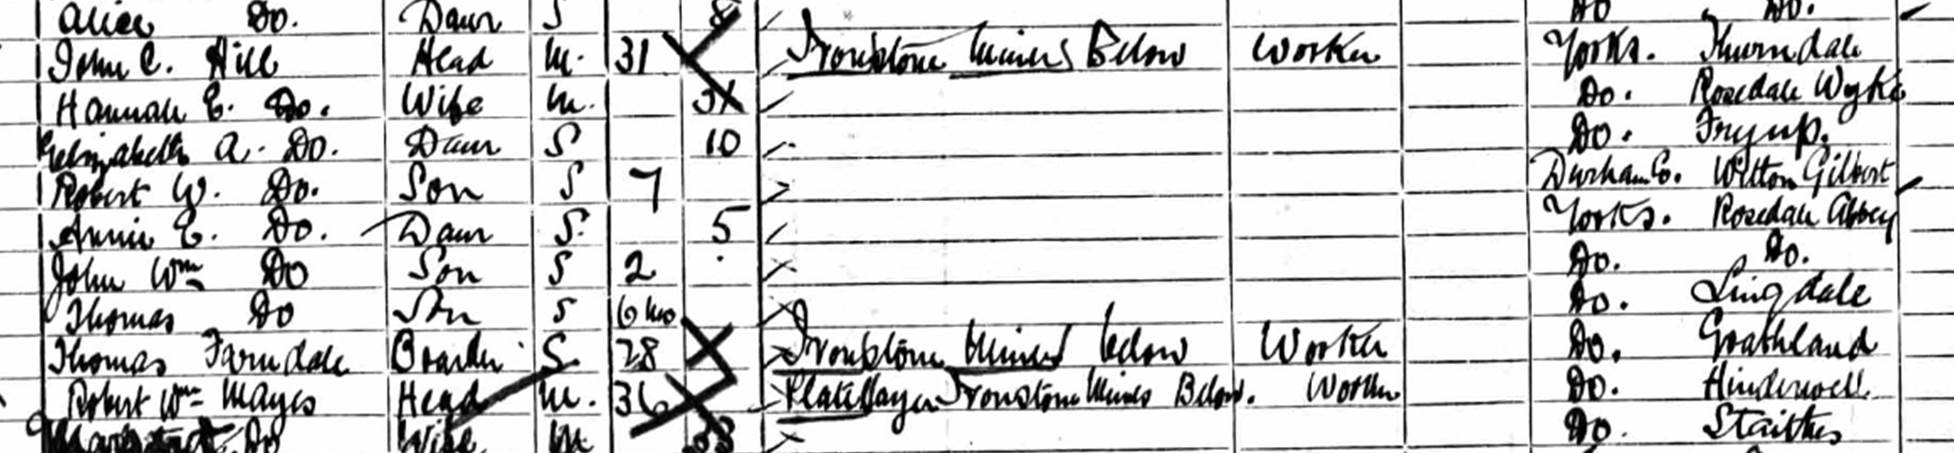 Alice Do. Daur S 8 Do Do.
John C. Hill Head M. 31 Ironstone Miner Below Worker Yorks. Thorndale
Hannah E. Do. Wife M. Do. Rosedale Wyke
Elizabeth A. Do. Daur S 10 Do. Fryup.
Robert W. Do. Son S 7 Durham Co. Witton Gilbert
Annie E. Do. Daur S. 5 Yorks. Rosedale Abbey
John Wm Do Son S 2 Do. Do.
Thomas Do Son S 6 mo Do. Lingdale
Thomas Farndale Boarder S. 28 Ironstone Miner below Worker Do. Goathland
Robert Wm Mayes Head M. 36 Platelayer Ironstone Mines Below. Worker Do. Hinderwell
Do Wife M Do. Staithes